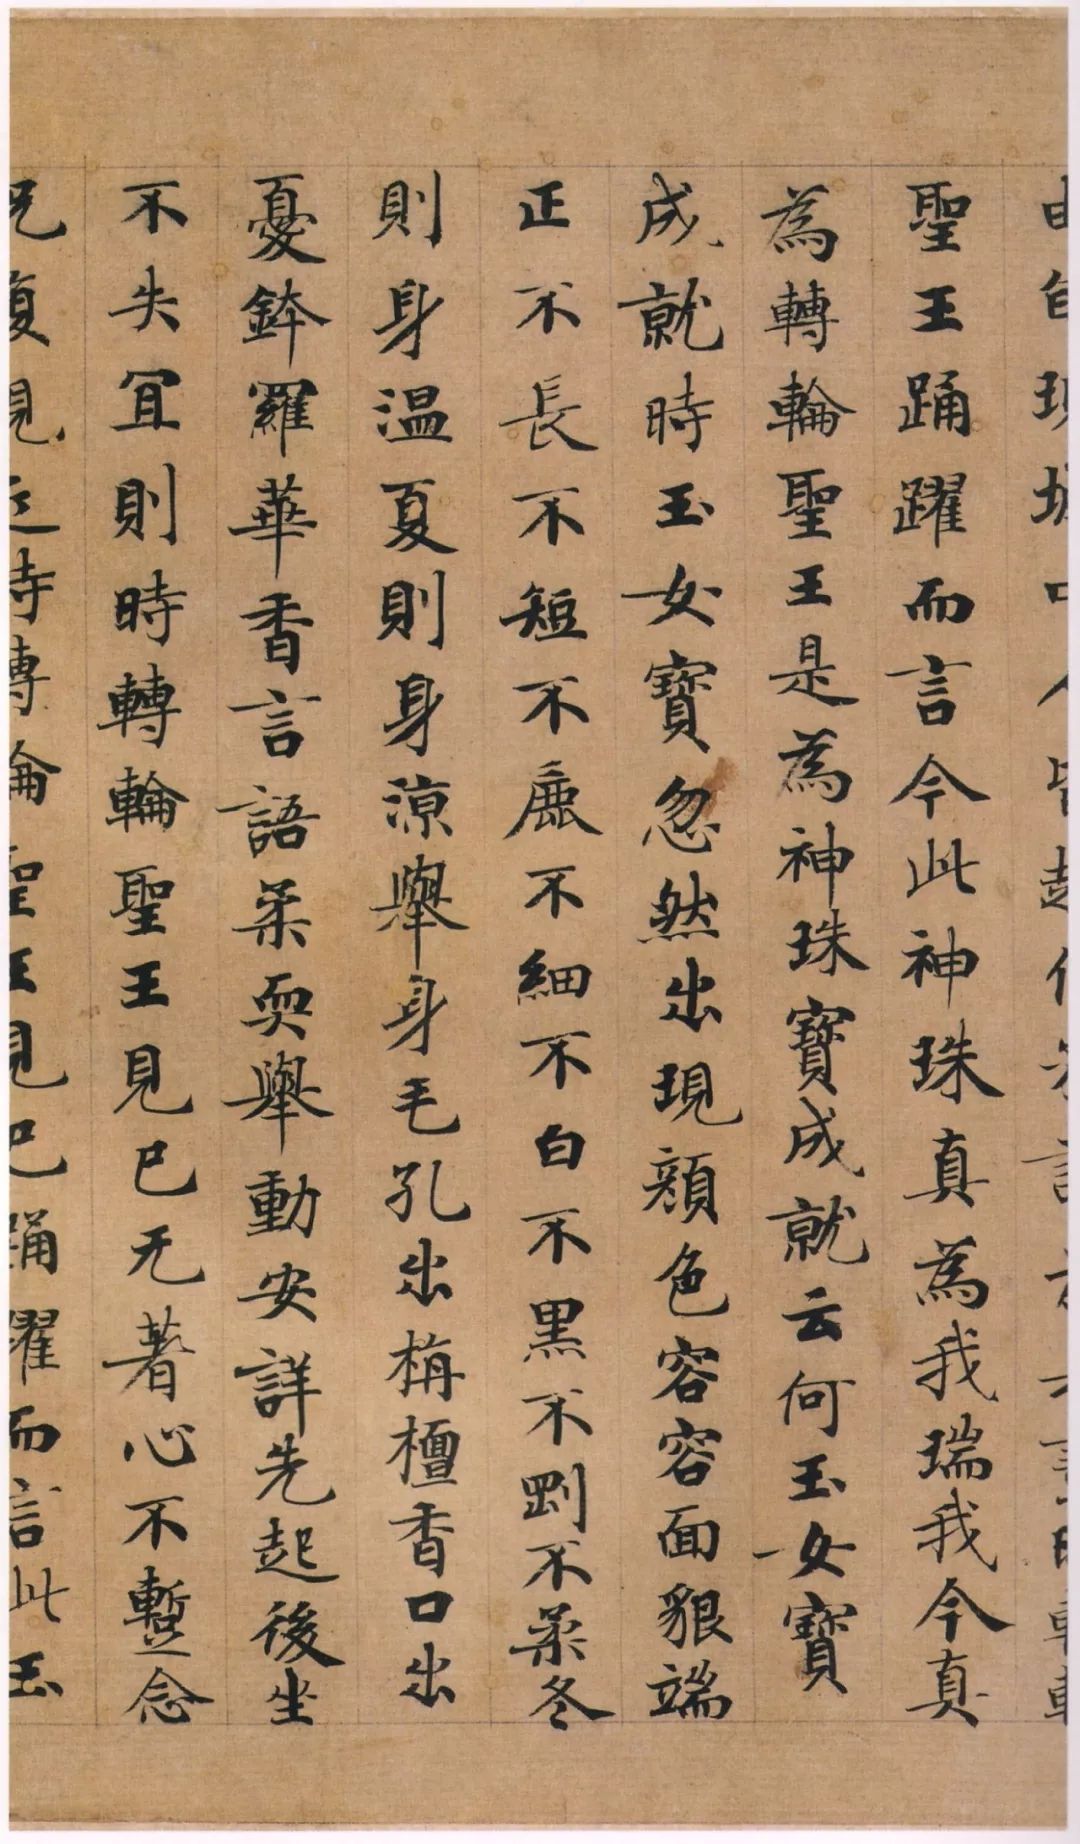 自現城中人皆起作
聖王踊躍而言今此神珠真為我瑞我今真
為轉輪聖王是為神珠寶成就云何玉女寶
成就時玉女寶忽然出現顏色容容面貌端
正不長不短不麁不細不白不黑不剛不柔冬
則身温夏則身涼舉身毛孔出栴檀香口出
憂鉢羅華香言語柔耎舉動安詳先起後坐
不失宜則時轉輪聖王見已无著心不蹔念
況復親近時轉輪聖王見已踊躍而言此玉